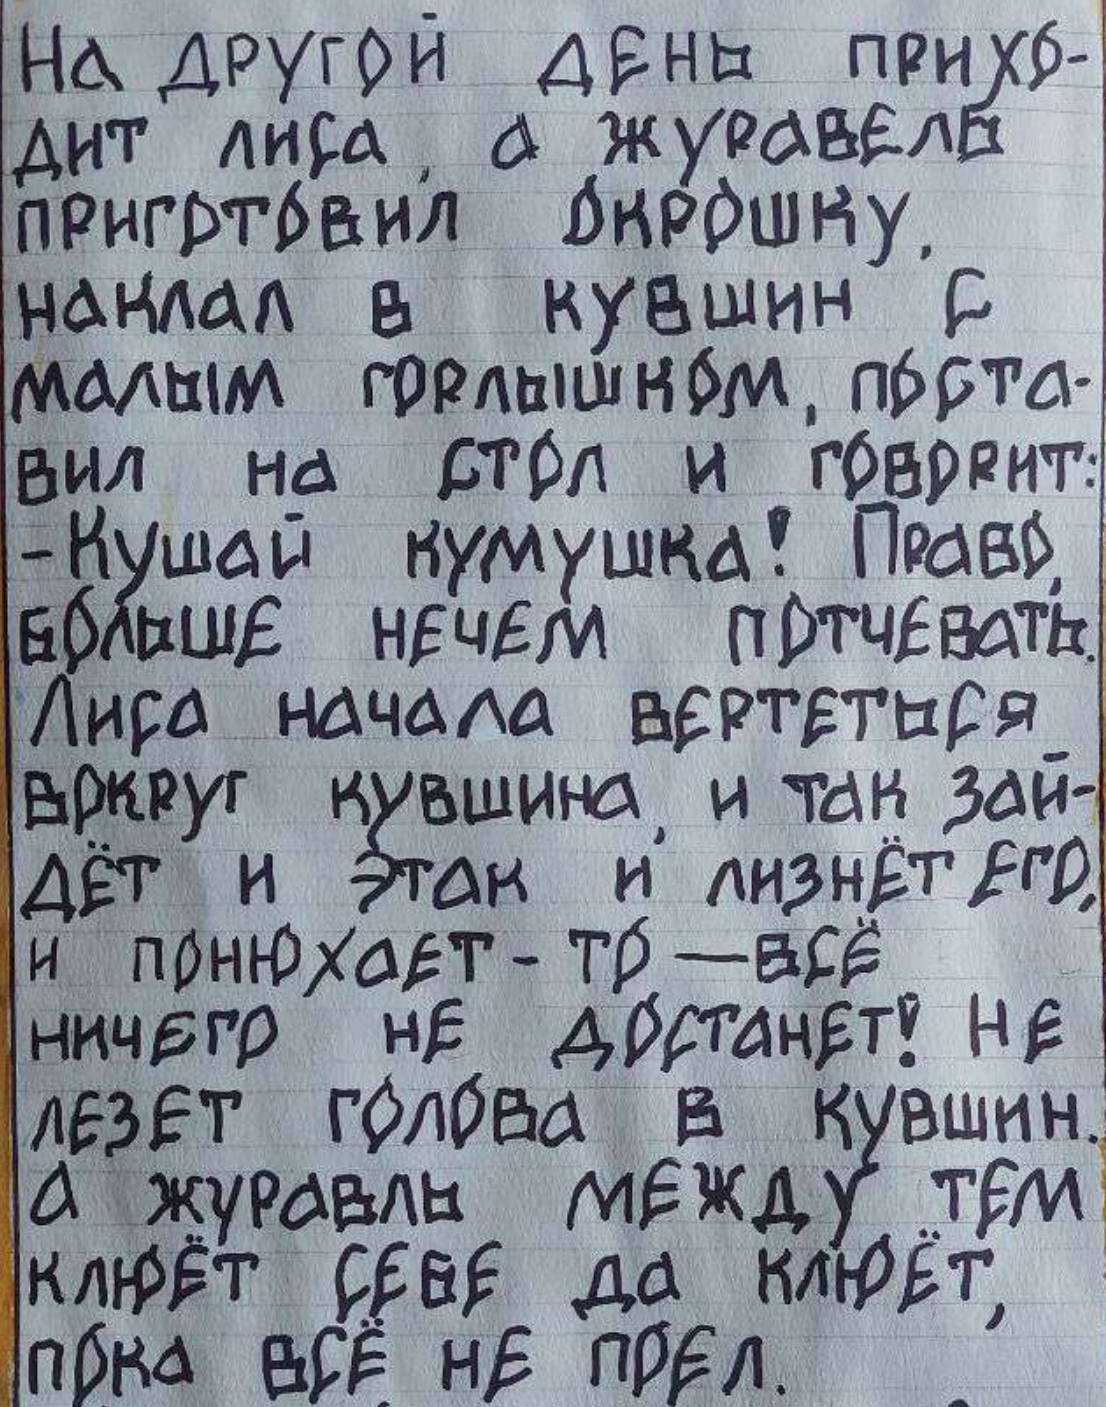 На другой день прихо-
дит лиса, а журавель
приготовил окрошку,
наклал в кувшин с
малым горлышком, поста-
вил на стол и говорит:
-Кушай кумушка! Право,
больше нечем потчевать.
Лиса начала вертеться
вокруг кувшина, и так зай-
дёт и этак и лизнёт его,
и понюхает-то—всё
ничего не достанет! Не
лезет голова в кувшин.
А журавль между тем
клюёт себе да клюёт,
пока всё не поел.